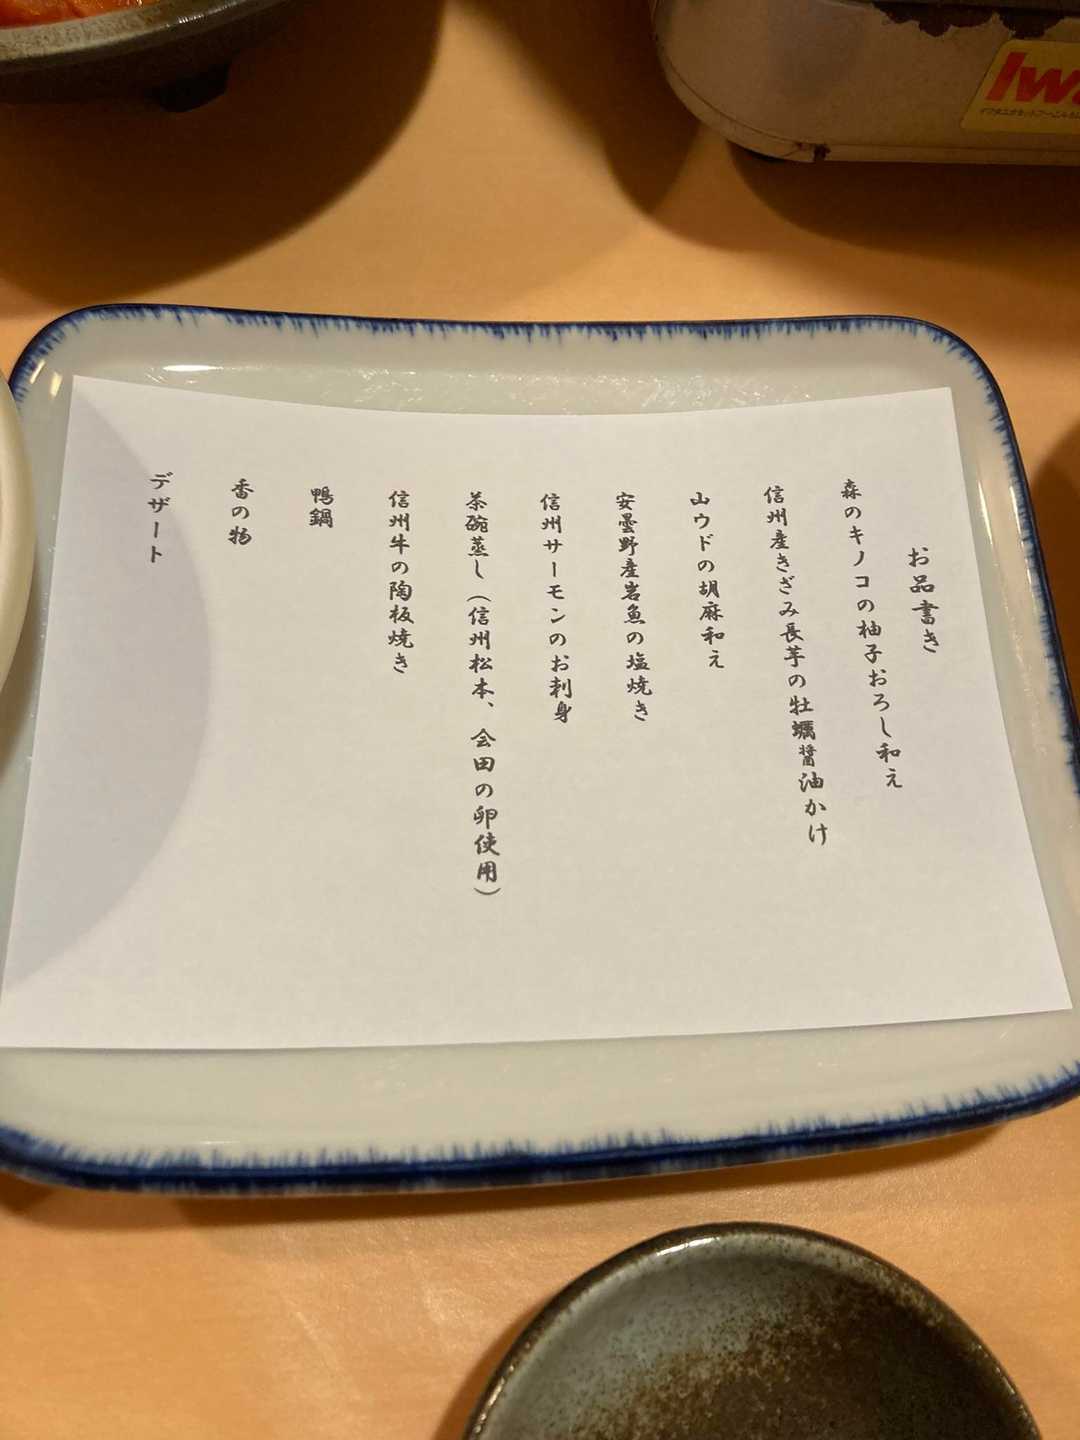 お品書き
森のキノコの柚子おろし和え
信州産きざみ長芋の牡蠣醤油かけ
山ウドの胡麻和え
安曇野産岩魚の塩焼き
信州サーモンのお刺身
茶碗蒸し（信州松本、会田の卵使用）
信州牛の陶板焼き
鴨鍋
香の物
デザート